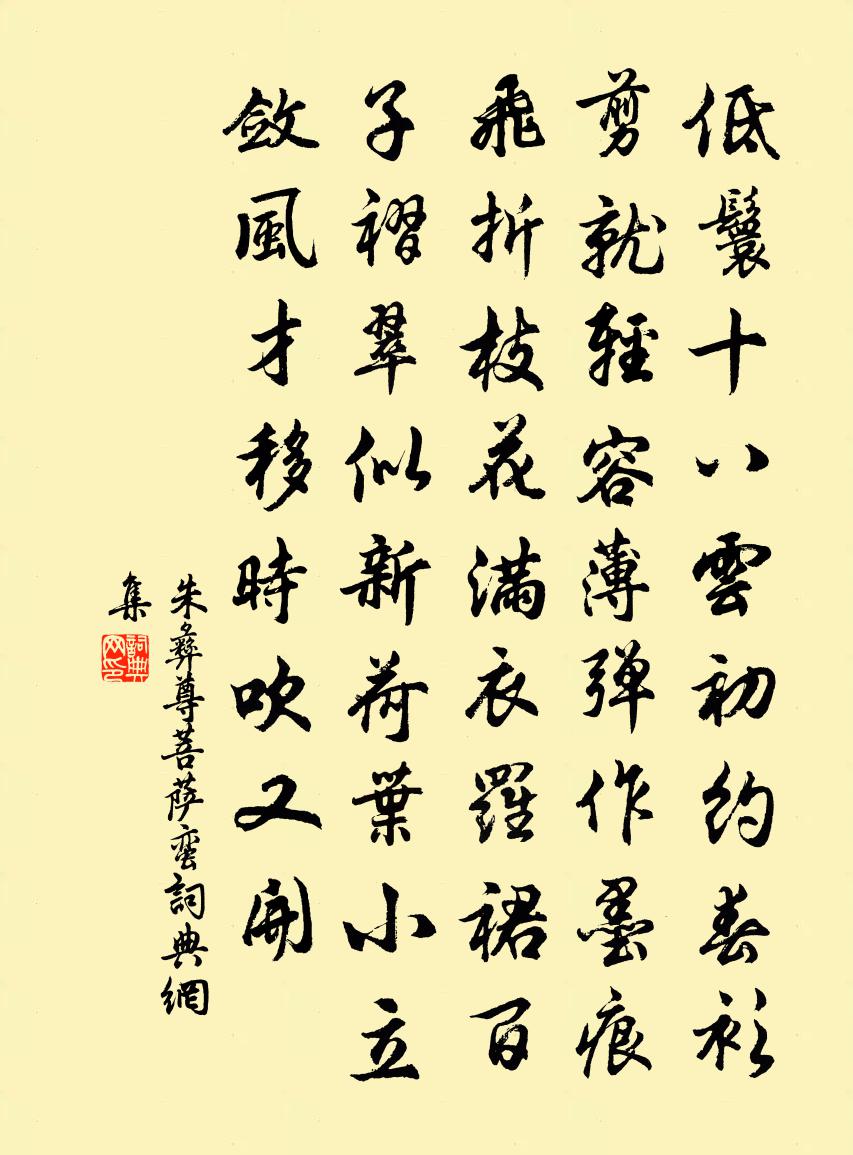 低鬟十八雲初約春衫
剪就輕容薄彈作墨痕
飛折枝花滿衣羅裙百
子褶翠似新荷葉小立
斂風才移時吹又開
朱彝尊菩萨蛮詞典網
集
詞典网印